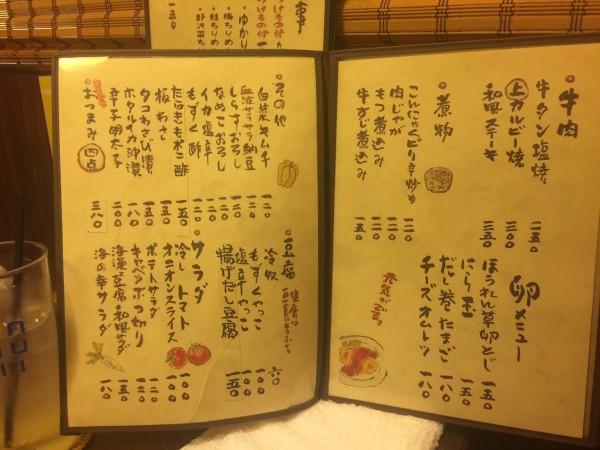 ゆかり
・梅ちりめ
・鮭ちりめ
・野沢菜ち
一五〇
・牛肉
牛タン塩焼 二五〇
上カルビー焼 三〇〇
和風ステーキ 三五〇
・煮物
こんにゃくピリ辛炒め 一二〇
肉じゃが
もつ煮込み
牛すじ煮込み
卵メニュー
ほうれん草卵とじ 一五〇
にら玉 一五〇
だし巻たまご 一八〇
チーズオムレツ 一八〇
・その他
白菜キムチ 一二〇
血液サラサラ納豆 一二〇
しらすおろし 一二〇
なめこおろし 一二〇
イカ塩辛 一二〇
もずく酢 一二〇
たらきもポン酢 一五〇
板わさ 一五〇
タコわさび漬 一五〇
ホタルイカ沖漬 一八〇
辛子明太子 二〇〇
おつまみ四点 三八〇
・豆腐
冷奴 六〇
もずくやっこ 一〇〇
塩辛やっこ 一〇〇
揚げだし豆腐 一五〇
・サラダ
冷しトマト 一〇〇
オニオンスライス 一〇〇
ポテトサラダ 一二〇
キャベツぶつ切り
海藻豆腐和風サラダ 一五〇
海の幸サラダ 一八〇